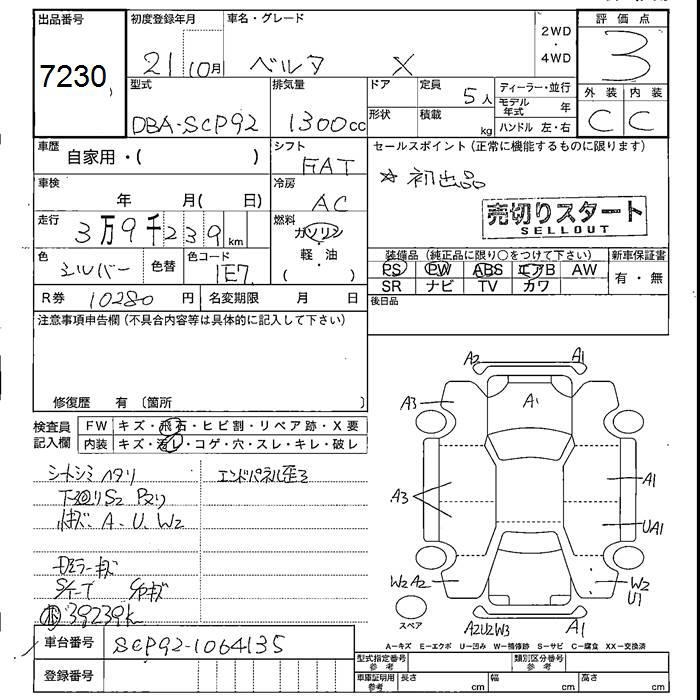 出品番号 初度登録年月 車名・グレード 2WD 評価点
7230 21 10月 ベルタ X 4WD 3
型式 排気量 ドア 定員 ディーラー・並行 外装 内装
DBA-SCP92 1300cc 5人 モデル年式 年 C C
形状 積載 kg ハンドル 左・右
車歴 シフト セールスポイント(正常に機能するものに限ります)
自家用・( ) FAT ☆初出品
車検 冷房
年 月( 日) AC
走行 燃料 売切りスタート
3万9千239km ガソリン SELLOUT
色 色替 色コード 軽・油 装備品(純正品に限り○をつけて下さい) 新車保証書
シルバー 1E7 ( ) PS PW ABS エアB AW 有・無
R券 10280円 名変期限 月 日 SR ナビ TV カワ
注意事項申告欄(不具合内容等は具体的に記入して下さい) 後日品
A2 A1
A3 A1
修復歴 有 〔箇所 〕
検査員 FW キズ・飛石・ヒビ割・リペア跡・X要
記入欄 内装 キズ・汚レ・コゲ・穴・スレ・キレ・破レ
シートシミ ヘタリ エンドパネル歪ミ
下廻りS2 A1
A3
A.U.W2 UA1
ドミラーキズ
W2A2 W2
U1
39239k
スペア
A2U2W3 A1
車台番号 SCP92-1064135 A-キズ E-エクボ U-凹み W-補修跡 S-サビ C-腐食 XX-交換済
型式指定番号 参考 類別区分番号 参考
登録番号 車庫証明用 参考 長さ cm 幅 cm 高さ cm